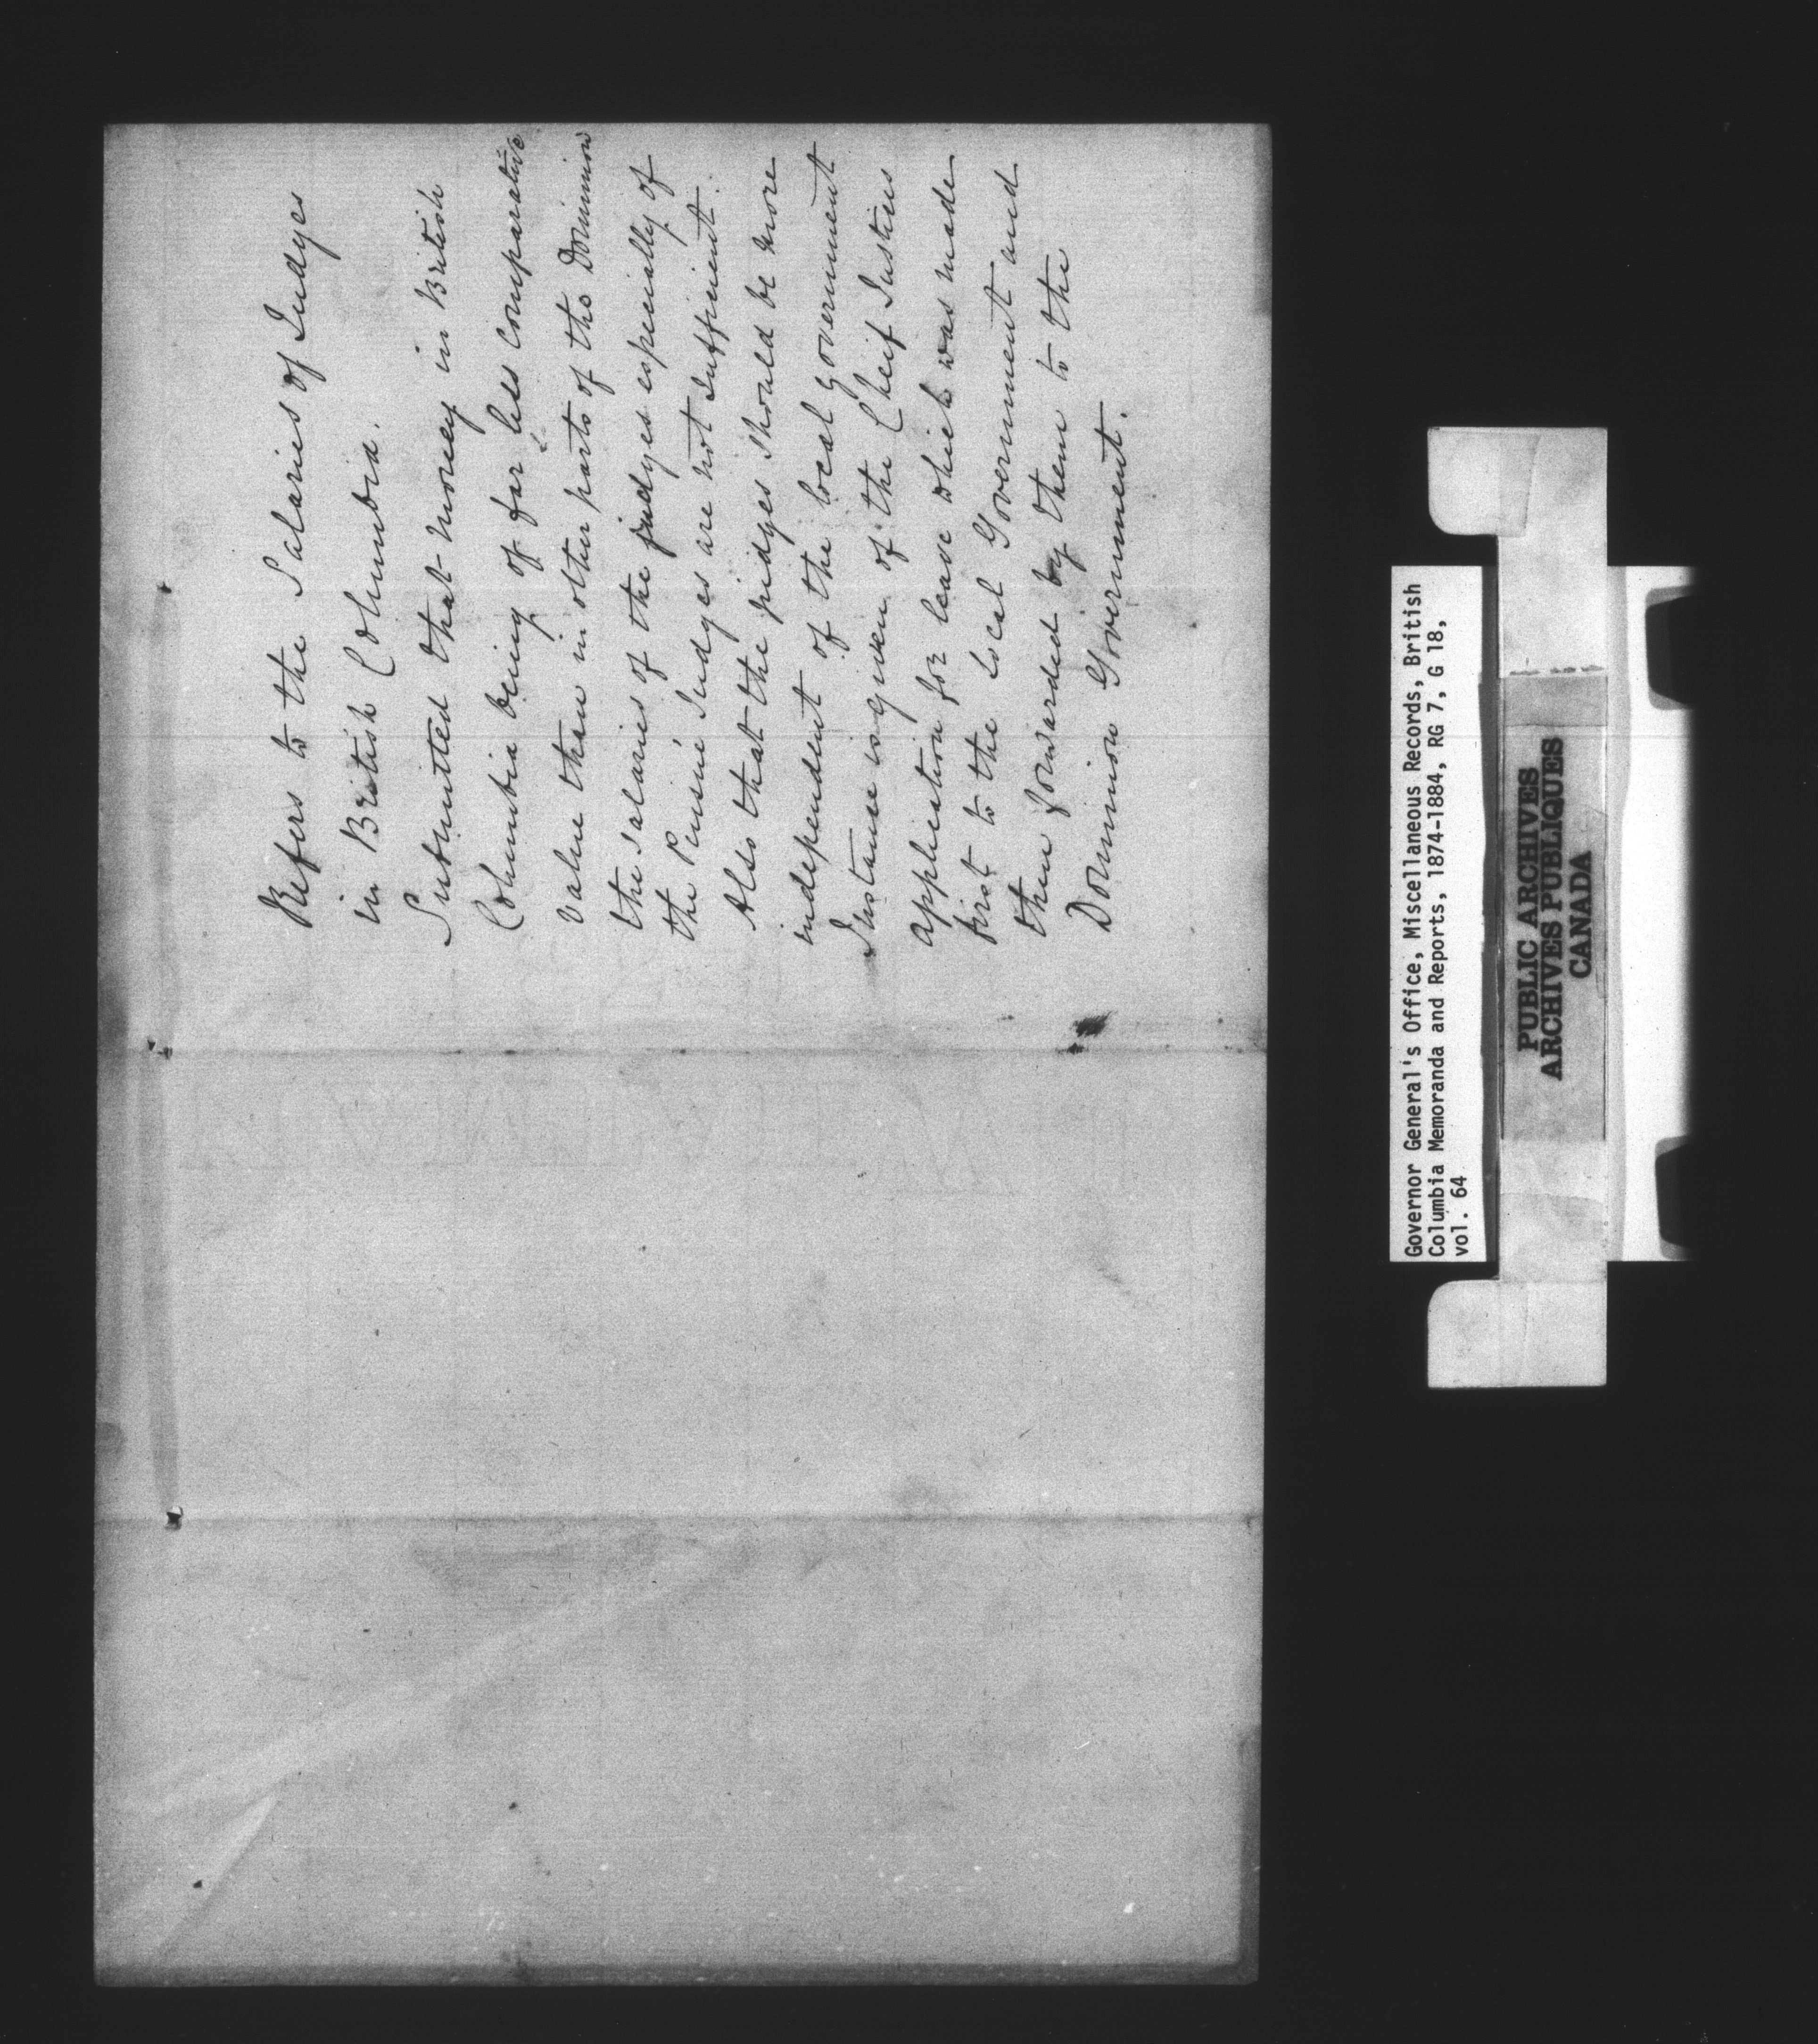 Refers to the Salaries of Judges
in British Columbia.
Submitted that money in British
Columbia being of far less comparative
value than in other parts of the Dominion
the salaries of the judges especially of
the Puisné Judges are not sufficient.
Also that the judges should be more
independent of the local government
Instance is given of the Cheif Justices
application for leave which was made
first to the local Government and
then forwarded by them to the
Dominion Government.
Governor General's Office, Miscellaneous Records, British
Columbia Memoranda and Reports, 1874-1884, RG 7, G 18,
vol. 64
PUBLIC ARCHIVES
ARCHIVES PUBLIQUES
CANADA